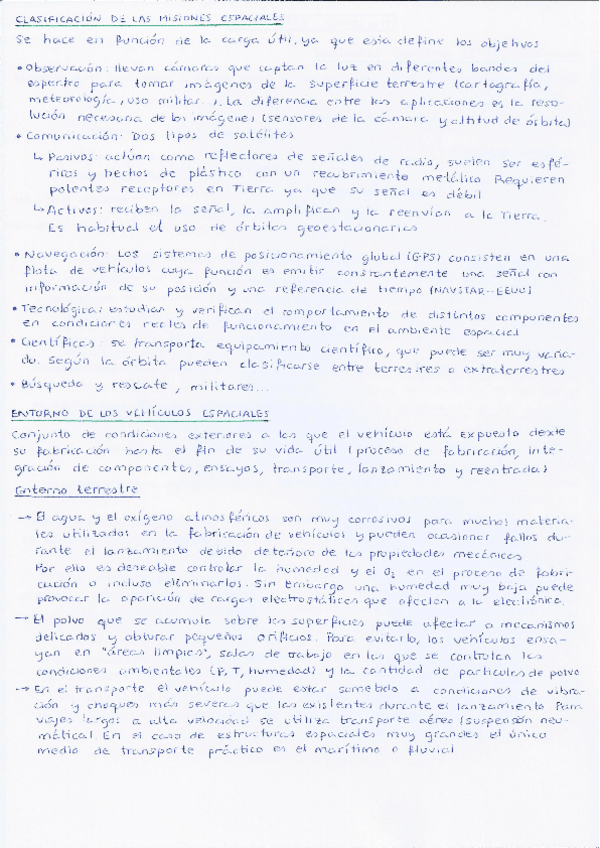 CLASIFICACIÓN DE LAS MISIONES ESPACIALES
Se hace en función de la carga útil, ya que esta define los objetivos
• Observación: llevan cámaras que captan la luz en diferentes bandas del
espectro para tomar imágenes de la superficie terrestre (cartografía,
meteorología, uso militar...). La diferencia entre las aplicaciones es la reso-
lución necesaria de las imágenes (sensores de la cámara y altitud de órbita)
• Comunicación: Dos tipos de satélites
↳ Pasivos: actúan como reflectores de señales de radio, suelen ser esfé-
ricos y hechos de plástico con un recubrimiento metálico. Requieren
potentes receptores en Tierra ya que su señal es débil
↳ Activos: reciben la señal, la amplifican y la reenvían a la Tierra.
Es habitual el uso de órbitas geoestacionarias
• Navegación: Los sistemas de posicionamiento global (GPS) consisten en una
flota de vehículos cuya función es emitir constantemente una señal con
información de su posición y una referencia de tiempo (NAVSTAR-EEUU)
• Tecnológica: estudian y verifican el comportamiento de distintos componentes
en condiciones reales de funcionamiento en el ambiente espacial
• Científicas: se transporta equipamiento científico, que puede ser muy varia-
do. Según la órbita pueden clasificarse entre terrestres o extraterrestres
• Búsqueda y rescate, militares...
ENTORNO DE LOS VEHÍCULOS ESPACIALES
Conjunto de condiciones exteriores a las que el vehículo está expuesto desde
su fabricación hasta el fin de su vida útil (proceso de fabricación, inte-
gración de componentes, ensayos, transporte, lanzamiento y reentrada)
Entorno terrestre
→ El agua y el oxígeno atmosféricos son muy corrosivos para muchos materia-
les utilizados en la fabricación de vehículos y pueden ocasionar fallos du-
rante el lanzamiento debido deterioro de las propiedades mecánicas
Por ello es deseable controlar la humedad y el O₂ en el proceso de fabri-
cación o incluso eliminarlos. Sin embargo una humedad muy baja puede
provocar la aparición de cargas electrostáticas que afecten a la electrónica.
→ El polvo que se acumula sobre las superficies puede afectar a mecanismos
delicados y obturar pequeños orificios. Para evitarlo, los vehículos ensa-
yan en "áreas limpias", salas de trabajo en las que se controlan las
condiciones ambientales (P, T, humedad) y la cantidad de partículas de polvo
→ En el transporte el vehículo puede estar sometido a condiciones de vibra-
ción y choques más severas que las existentes durante el lanzamiento. Para
viajes largos a alta velocidad se utiliza transporte aéreo (suspensión neu-
mática). En el caso de estructuras espaciales muy grandes el único
medio de transporte práctico es el marítimo o fluvial